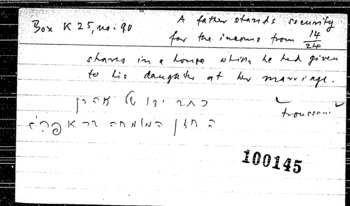 Box K 25, no: 90
A father stands security
for the income from 14/24
shares in a house which he had given
to his daughter at her marriage.
כתב ידו של אהרן
trousseau
החזן המומחה בר אפרים
100145